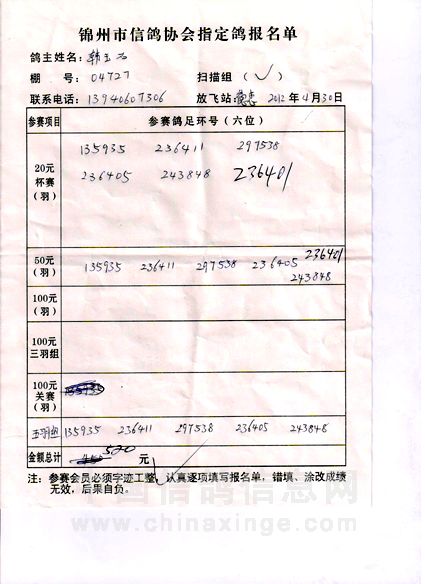 锦州市信鸽协会指定鸽报名单
鸽主姓名：韩玉
棚 号：04727 扫描组（✓）
联系电话：13940607306 放飞站： 2012年4月30日
参赛项目 参赛鸽足环号（六位）
20元杯赛（羽） 135935 236411 297538
236405 243848 236401
50元（羽） 135935 236411 297538 236405 236401
243848
100元（羽）
100元三羽组
100元关赛（羽）
五羽组 135935 236411 297538 236405 243848
金额总计 520 元
注：参赛会员必须字迹工整，认真逐项填写报名单，错填、涂改成绩
无效，后果自负。
中国信鸽信息网
www.chinaxinge.com